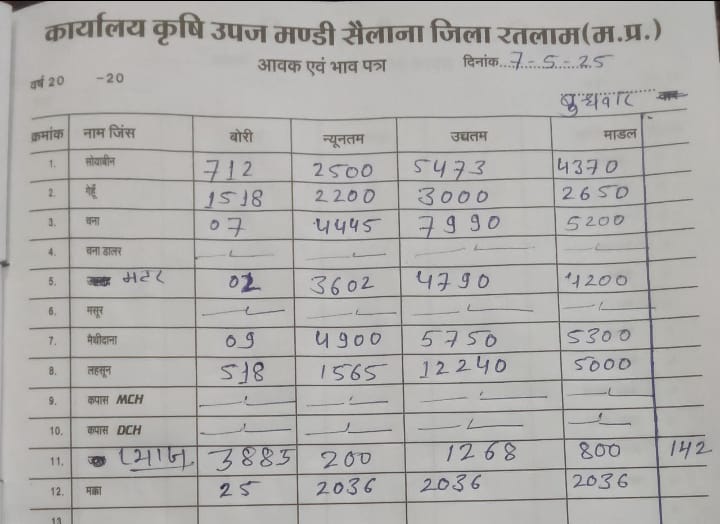 कार्यालय कृषि उपज मण्डी सैलाना जिला रतलाम(म.प्र.)
आवक एवं भाव पत्र दिनांक...7-5-25
वर्ष 20 -20
बुधवार वार
क्रमांक नाम जिंस बोरी न्यूनतम उच्चतम माडल
1. सोयाबीन 712 2500 5473 4370
2. गेहूँ 1518 2200 3000 2650
3. चना 07 4445 7990 5200
4. चना डालर
5. मटर 02 3602 4790 4200
6. मसूर
7. मैथीदाना 09 4900 5750 5300
8. लहसून 518 1565 12240 5000
9. कपास MCH
10. कपास DCH
11. प्याज 3885 200 1268 800 142
12. मक्का 25 2036 2036 2036
13